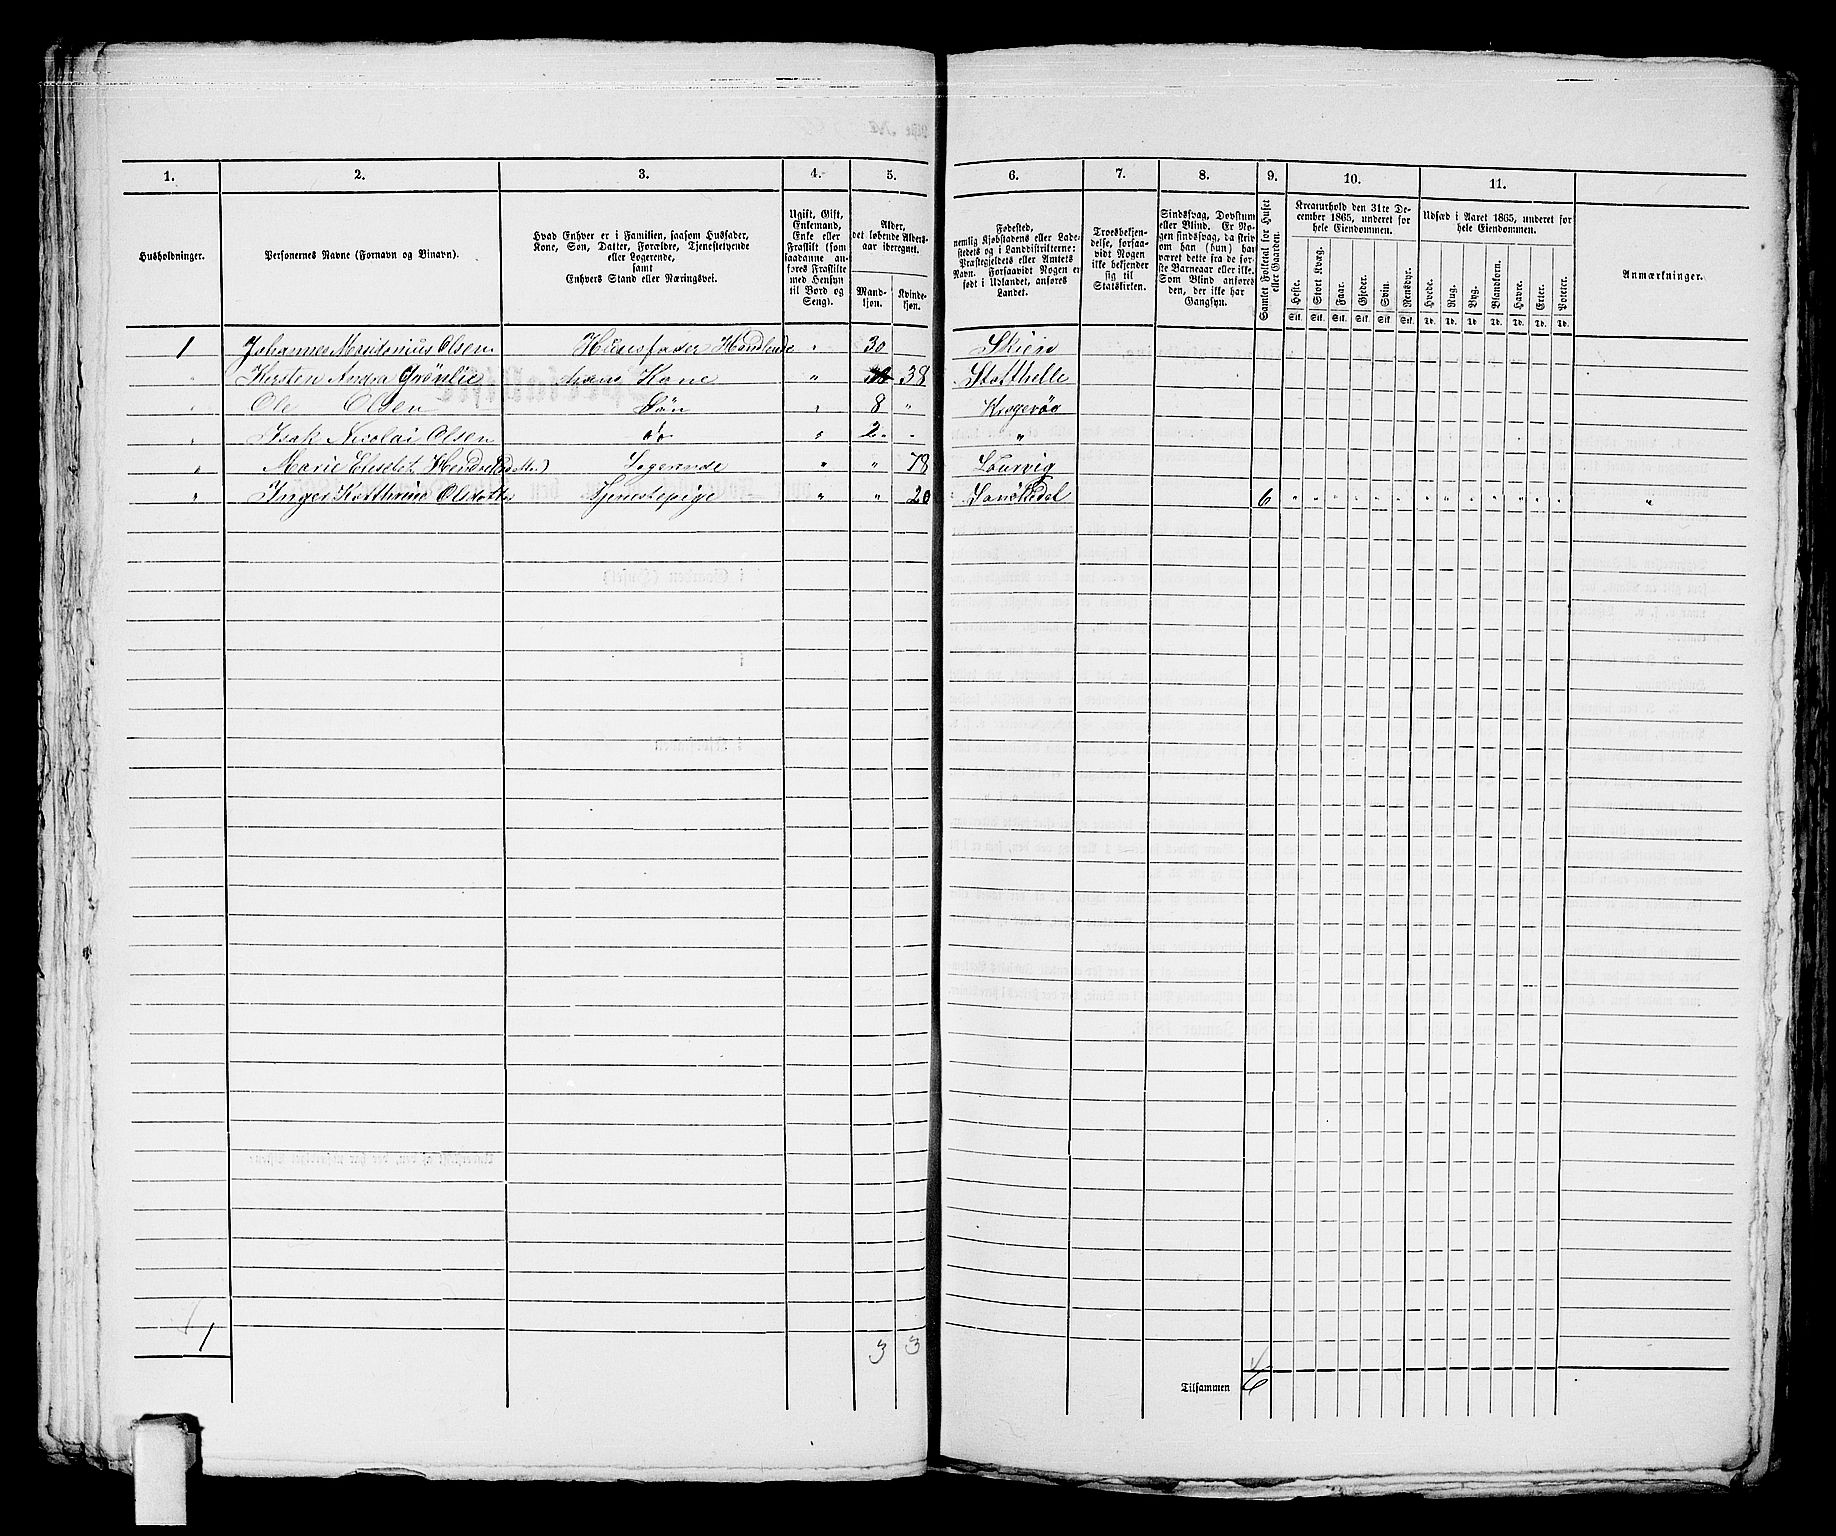 1. 2. 3. 4. 5. 6. 7. 8. 9. 10. 11.
Husholdninger.
Personernes Navne (Fornavn og Binavn).
Hvad Enhver er i Familien, saasom Husfader,
Kone, Søn, Datter, Forældre, Tjenestetyende
eller Logerende,
samt
Enhvers Stand eller Næringsvei.
Ugift, Gift,
Enkemand,
Enke eller
Fraskilt (som
saadanne an-
føres Fraskilte
med Hensyn
til Bord og
Seng).
Alder,
det løbende Alders-
aar iberegnet.
Mand-
kjøn.
Kvinde-
kjøn.
Fødested,
nemlig Kjøbstadens eller Lade-
stedets og i Landdistrikterne:
Præstegjeldets eller Amtets
Navn. Forsaavidt Nogen er
født i Udlandet, anføres
Landet.
Troesbekjen-
delse, forsaa-
vidt Nogen
ikke bekjender
sig til
Statskirken.
Sindssvag, Døvstum
eller Blind. Er No-
gen sindssvag, da skriv
om han (hun) har
været dette fra de før-
ste Barneaar eller ikke.
Som Blind anføres
den, der ikke har
Gangsyn.
Samlet Folketal for Huset
eller Gaarden.
Kreaturhold den 31te De-
cember 1865, underet for
hele Eiendommen.
Heste. Stort Kvæg. Faar. Gjeder. Svin. Rensdyr.
Stk. Stk. Stk. Stk. Stk. Stk.
Udsæd i Aaret 1865, underet for
hele Eiendommen.
Hvede. Rug. Byg. Blandkorn. Havre. Erter. Poteter.
Td. Td. Td. Td. Td. Td. Td.
Anmærkninger.
1 Johannes Olsen Huusfader Handlende " 30 Skien
" Kersten Andra Grönlie hans Kone " 38 Stathelle
" Ole Olsen Søn " 8 " Kragerøe
" Isak Nicolai Olsen do " 2 " "
" Marie Elisabet Logerende " " 78 Laurvig
" Inger Katthrine Olsdatter Tjenestepige " " 20 Sanökedal 6 " " " " " " " " " " " " " "
1 3 3
Tilsammen 6